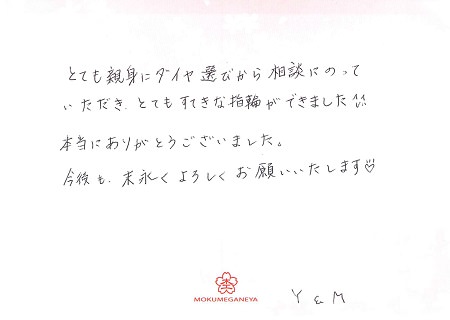 とても親身にダイヤ選びから相談にのって
いただき、とてもすてきな指輪ができました^^
本当にありがとうございました。
今後も、末永くよろしくお願いいたします♡
MOKUMEGANEYA
Y & M